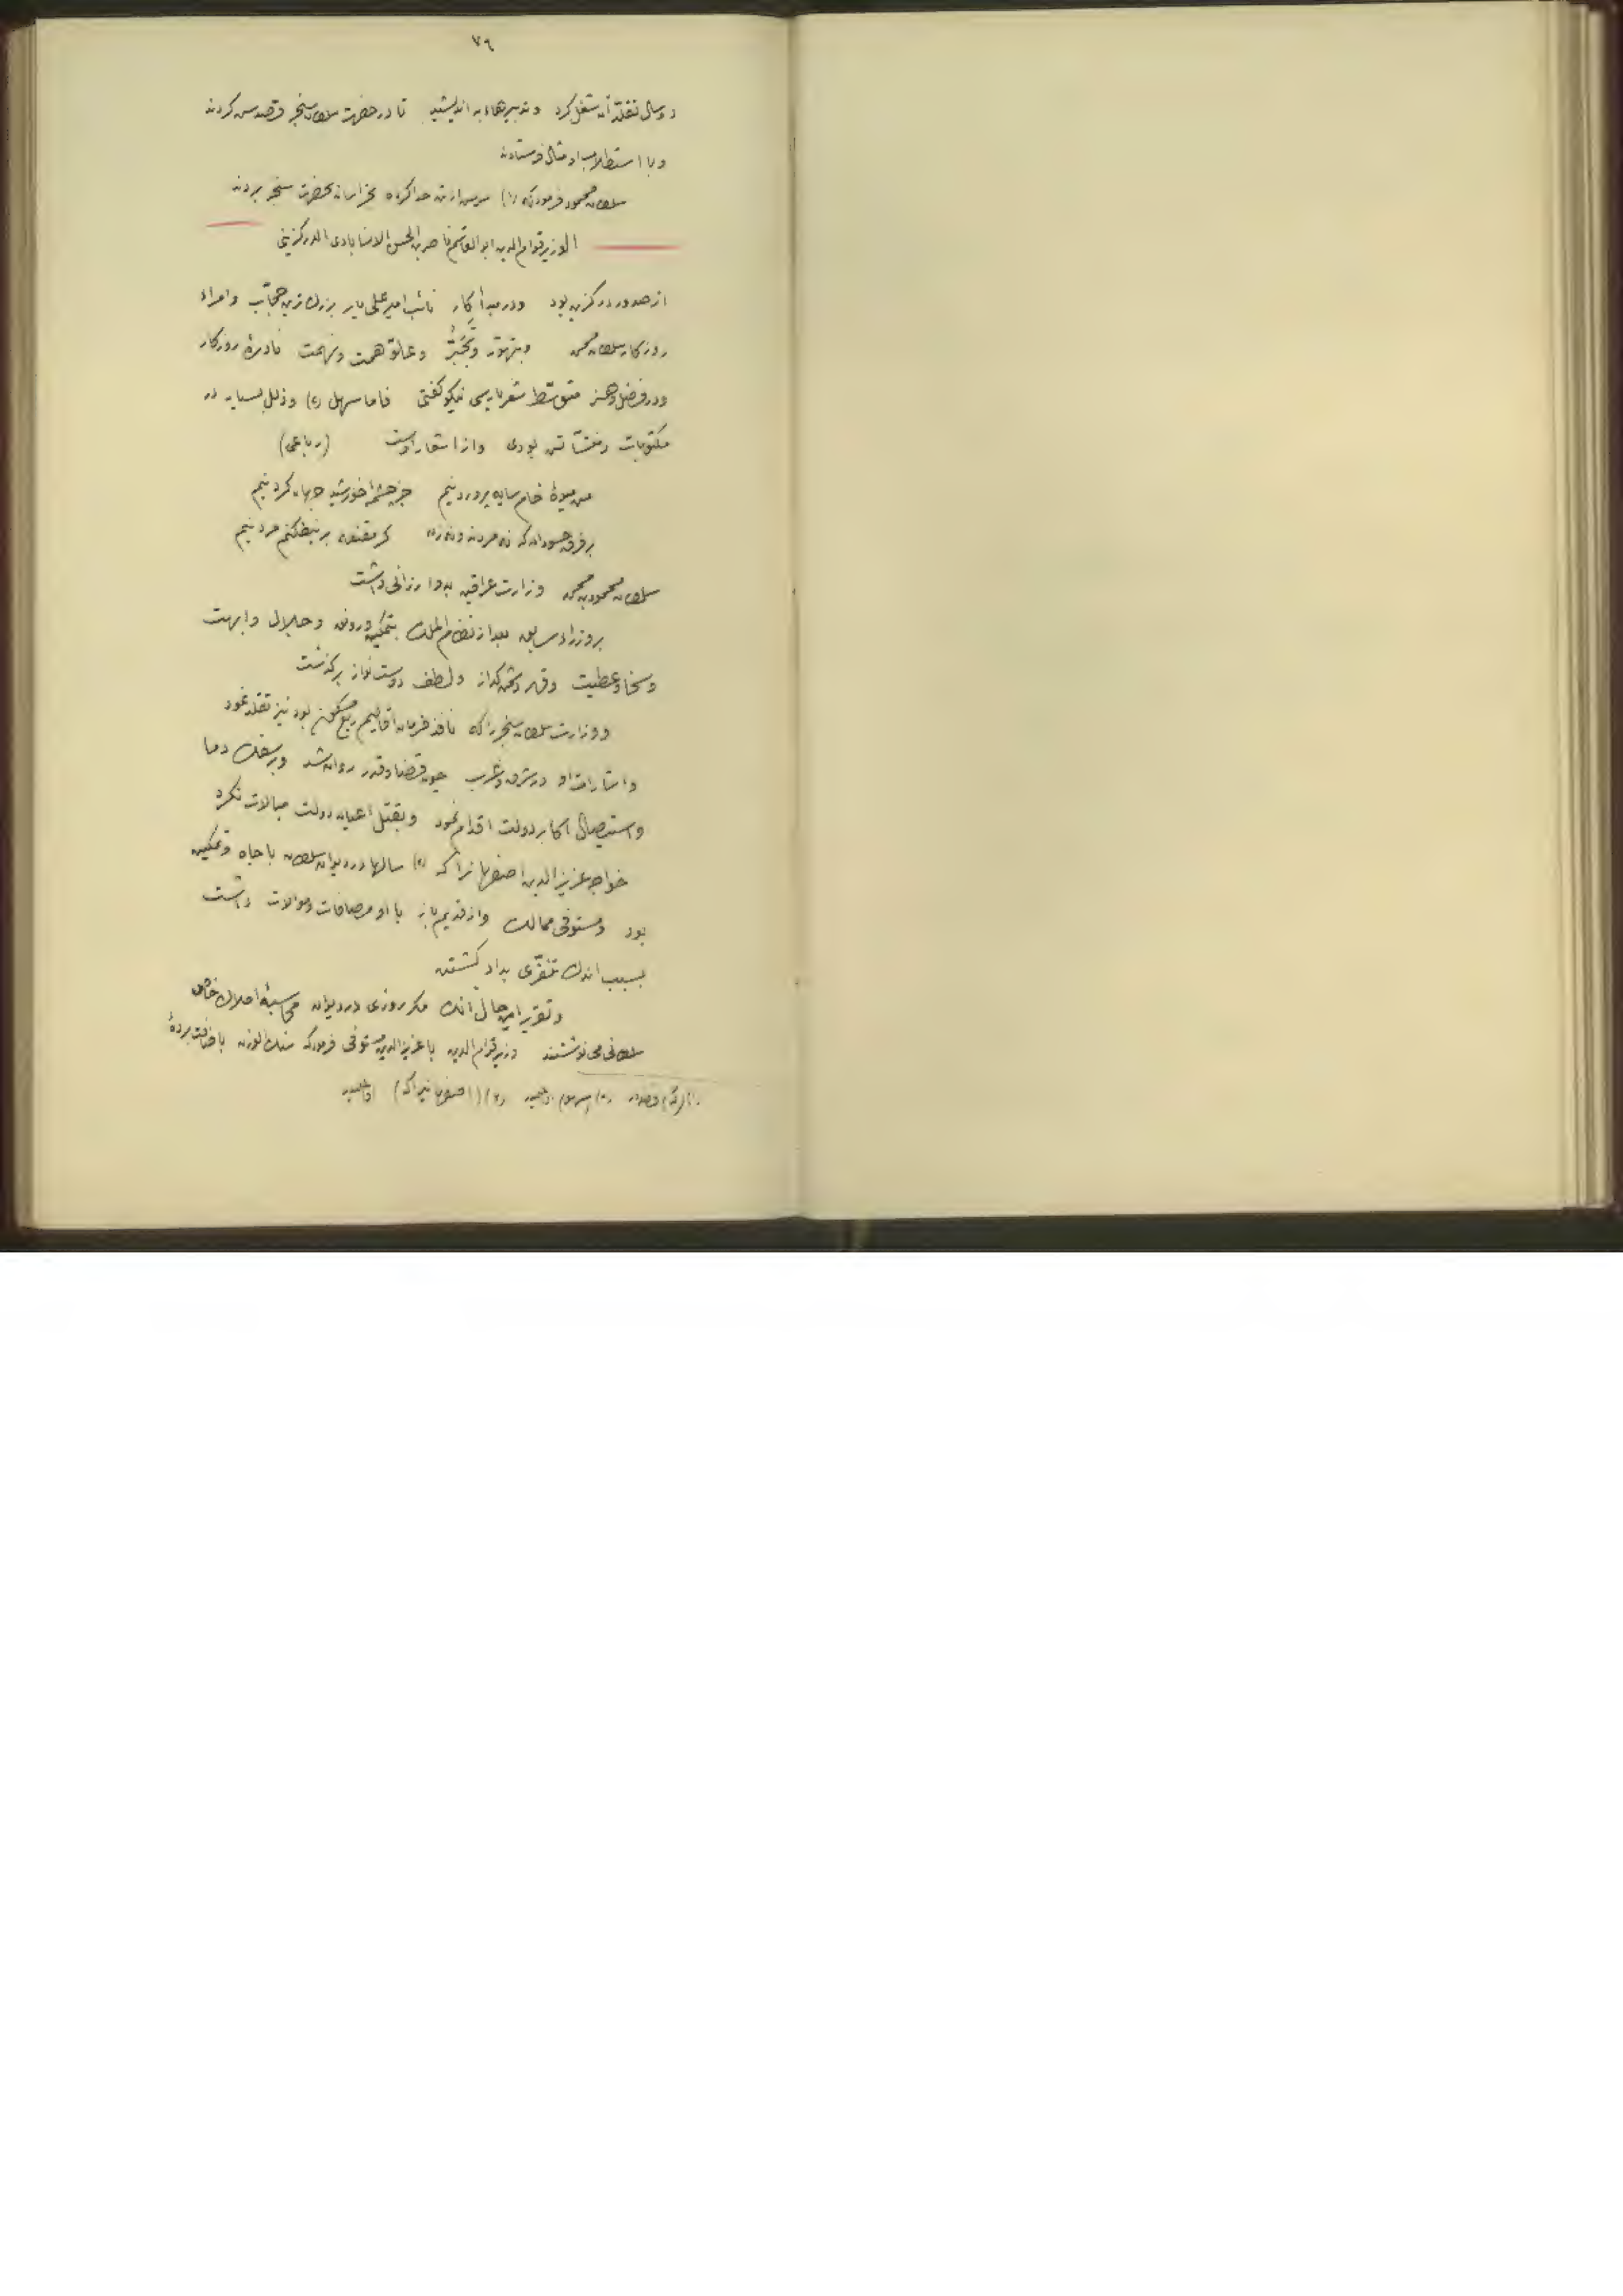 ٧٩
دو سال تقلّد آن شغل کرد و تدبیرهاء به اندیشید تا در حضرت سلطان سنجر قصدش کردند
و با استطلاب او مثال فرستادند
سلطان محمود فرمود که (١) سرش از تن جدا کرده بخراسان بحضرت سنجر بردند
الوزیر قوام الدین ابو القاسم ناصر بن الحسن الانسابادی الدرکزینی
از صدور درکزین بود و در مبدأ کار نائب امیر علی بار بزرگ‌ترین حجّاب و امراء
روزکار سلطان محمد و بتهوّر و تجبّر و علوّ همت و نهمت نادرهٔ روزکار
و در فضل و هنر متوسّط شعر پارسی نیکو کفتی فاما سهل (٢) و زلل بسیار در
مکتوبات و منشآتش بودی و از اشعار اوست (رباعی)
من میوهٔ خام سایه پرورد نیم جز چشمهٔ خورشید جهان کرد نیم
بر فرق حسودان که نه مردند و نه زن کر مقنعه بر نیفکنم مرد نیم
سلطان محمود بن محمد وزارت عراقین بدو ارزانی داشت
بر وزراء سابق بعد از نظام الملک بتمکین و رونق و جلال و ابهت
و سخا و عطیت و قهر دشمن کداز و لطف دوست نواز برکذشت
و وزارت سلطان سنجر را که نافذ فرمان اقالیم ربع مسکون بود نیز تقلد نمود
و اشارات او در شرق و غرب چون قضا و قدر روان شد و بر سفک دما
و استیصال اکابر دولت اقدام نمود و بقتل اعیان دولت مبالات نکرد
خواجه عزیز الدین اصفهانرا که (٣) سالها در دیوان سلطان با جاه و تمکین
بود و مستوفی ممالک و از قدیم باز با او مصافات و موالات داشت
بسبب اندک تنفّری بداد کشتن
و تقریر این حال آنک مکر روزی در دیوان محاسبهٔ املاک خاص
سلطانی می نوشتند وزیر قوام الدین با عزیز الدین مستوفی فرمود که بردهٔ
(٣) (اصفهانیرا که)